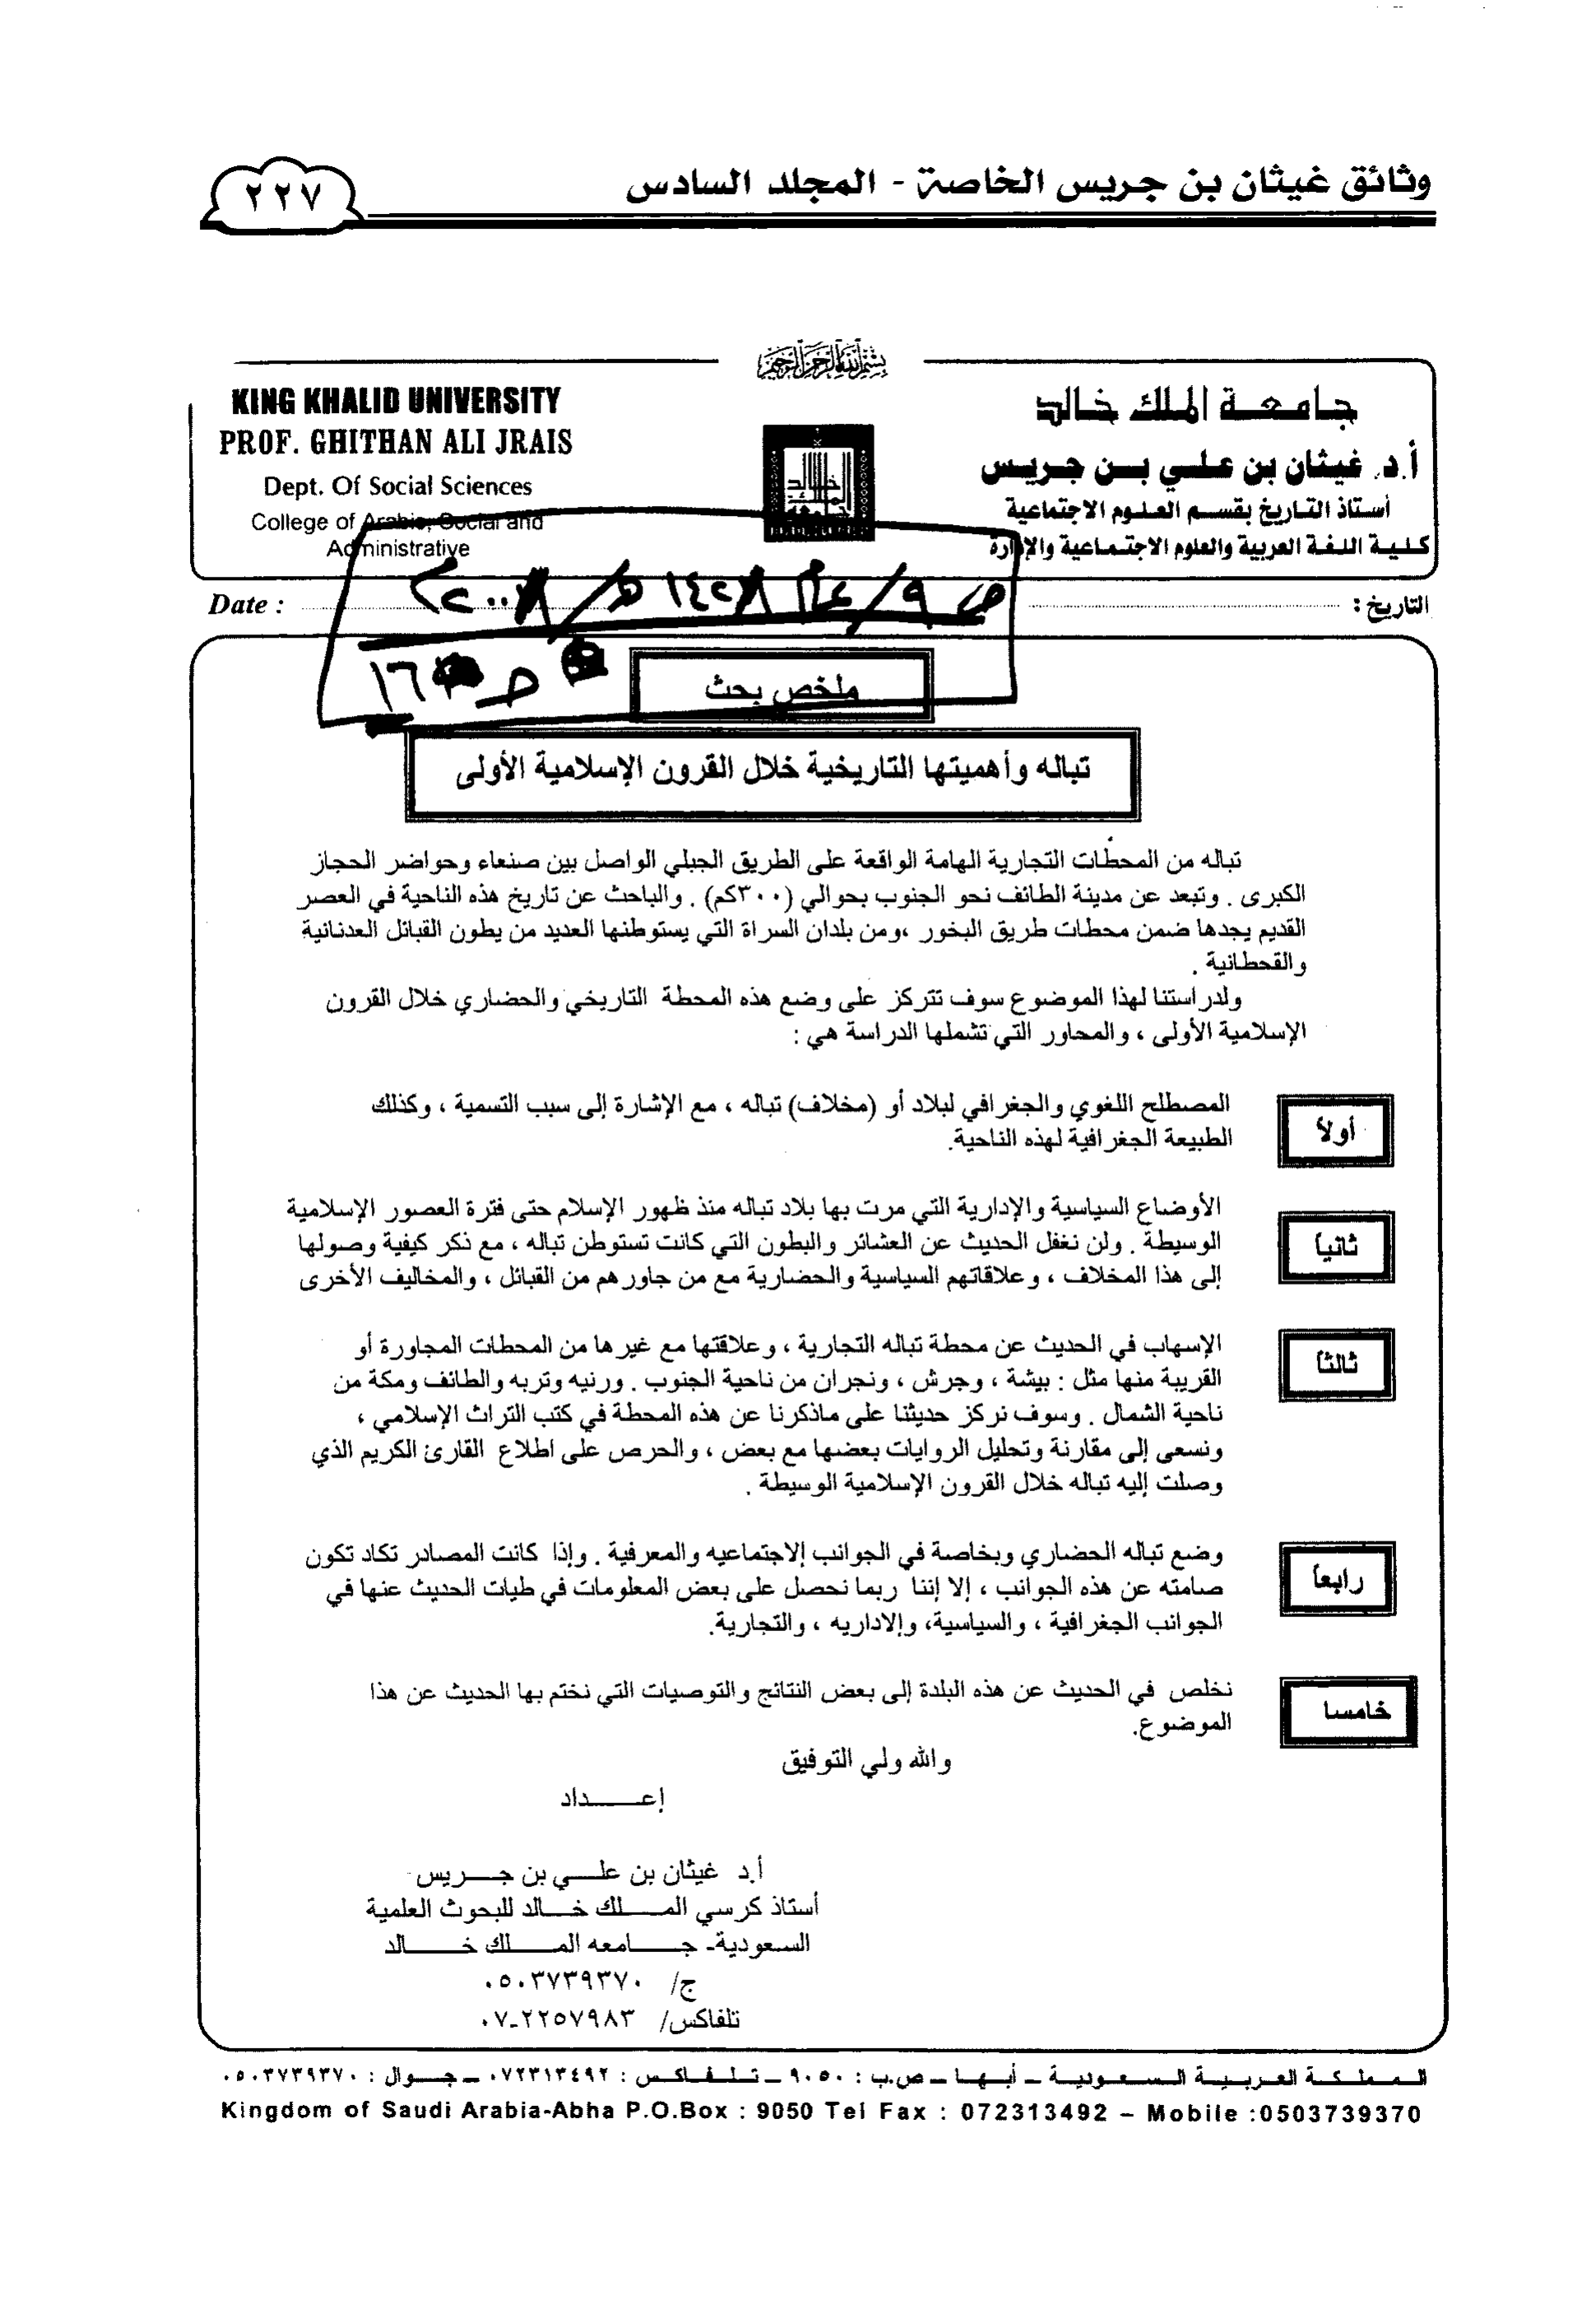 وثائق غيثان بن جريس الخاصة - المجلد السادس
٢٢٧
بسم الله الرحمن الرحيم
جامعة الملك خالد
أ.د. غيثان بن علي بن جريس
أستاذ التاريخ بقسم العلوم الاجتماعية
كلية اللغة العربية والعلوم الاجتماعية والإدارة
KING KHALID UNIVERSITY
PROF. GHITHAN ALI JRAIS
Dept. Of Social Sciences
College of Arabic, Social and
Administrative
التاريخ :
Date :
ملخص بحث
تباله وأهميتها التاريخية خلال القرون الإسلامية الأولى
تباله من المحطات التجارية الهامة الواقعة على الطريق الجبلي الواصل بين صنعاء وحواضر الحجاز
الكبرى . وتبعد عن مدينة الطائف نحو الجنوب بحوالي (٣٠٠كم) . والباحث عن تاريخ هذه الناحية في العصر
القديم يجدها ضمن محطات طريق البخور ،ومن بلدان السراة التي يستوطنها العديد من بطون القبائل العدنانية
والقحطانية .
ولدراستنا لهذا الموضوع سوف تتركز على وضع هذه المحطة التاريخي والحضاري خلال القرون
الإسلامية الأولى ، والمحاور التي تشملها الدراسة هي :
أولاً
المصطلح اللغوي والجغرافي لبلاد أو (مخلاف) تباله ، مع الإشارة إلى سبب التسمية ، وكذلك
الطبيعة الجغرافية لهذه الناحية.
ثانياً
الأوضاع السياسية والإدارية التي مرت بها بلاد تباله منذ ظهور الإسلام حتى فترة العصور الإسلامية
الوسيطة . ولن نغفل الحديث عن العشائر والبطون التي كانت تستوطن تباله ، مع ذكر كيفية وصولها
إلى هذا المخلاف ، وعلاقاتهم السياسية والحضارية مع من جاورهم من القبائل ، والمخاليف الأخرى
ثالثاً
الإسهاب في الحديث عن محطة تباله التجارية ، وعلاقتها مع غيرها من المحطات المجاورة أو
القريبة منها مثل : بيشة ، وجرش ، ونجران من ناحية الجنوب . ورنيه وتربه والطائف ومكة من
ناحية الشمال . وسوف نركز حديثنا على ماذكرنا عن هذه المحطة في كتب التراث الإسلامي ،
ونسعى إلى مقارنة وتحليل الروايات بعضها مع بعض ، والحرص على اطلاع القارئ الكريم الذي
وصلت إليه تباله خلال القرون الإسلامية الوسيطة .
رابعاً
وضع تباله الحضاري وبخاصة في الجوانب الإجتماعيه والمعرفية . وإذا كانت المصادر تكاد تكون
صامته عن هذه الجوانب ، إلا إننا ربما نحصل على بعض المعلومات في طيات الحديث عنها في
الجوانب الجغرافية ، والسياسية، والإداريه ، والتجارية.
خامسا
نخلص في الحديث عن هذه البلدة إلى بعض النتائج والتوصيات التي نختم بها الحديث عن هذا
الموضوع.
والله ولي التوفيق
إعـــــداد
أ.د غيثان بن علـــي بن جـــريس
أستاذ كرسي المـــلك خـــالد للبحوث العلمية
السعودية- جـــامعه المـــلك خـــالد
ج/ ٠٥٠٣٧٣٩٣٧٠
تلفاكس/ ٠٧-٢٢٥٧٩٨٣
المملكة العربية السعودية – أبها – ص.ب : ٩٠٥٠ – تلفاكس : ٠٧٢٣١٣٤٩٢ – جوال : ٠٥٠٣٧٣٩٣٧٠
Kingdom of Saudi Arabia-Abha P.O.Box : 9050 Tel Fax : 072313492 – Mobile :0503739370